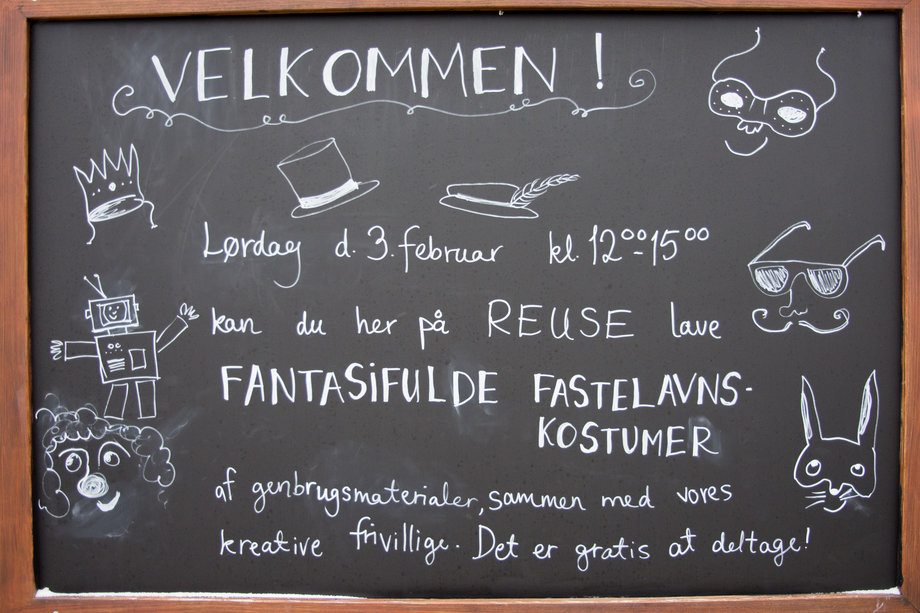 VELKOMMEN!
Lørdag d. 3. februar kl. 12⁰⁰-15⁰⁰
kan du her på REUSE lave
FANTASiFULDE FASTELAVNS-
KOSTUMER
af genbrugsmaterialer, sammen med vores
kreative frivillige. Det er gratis at deltage!